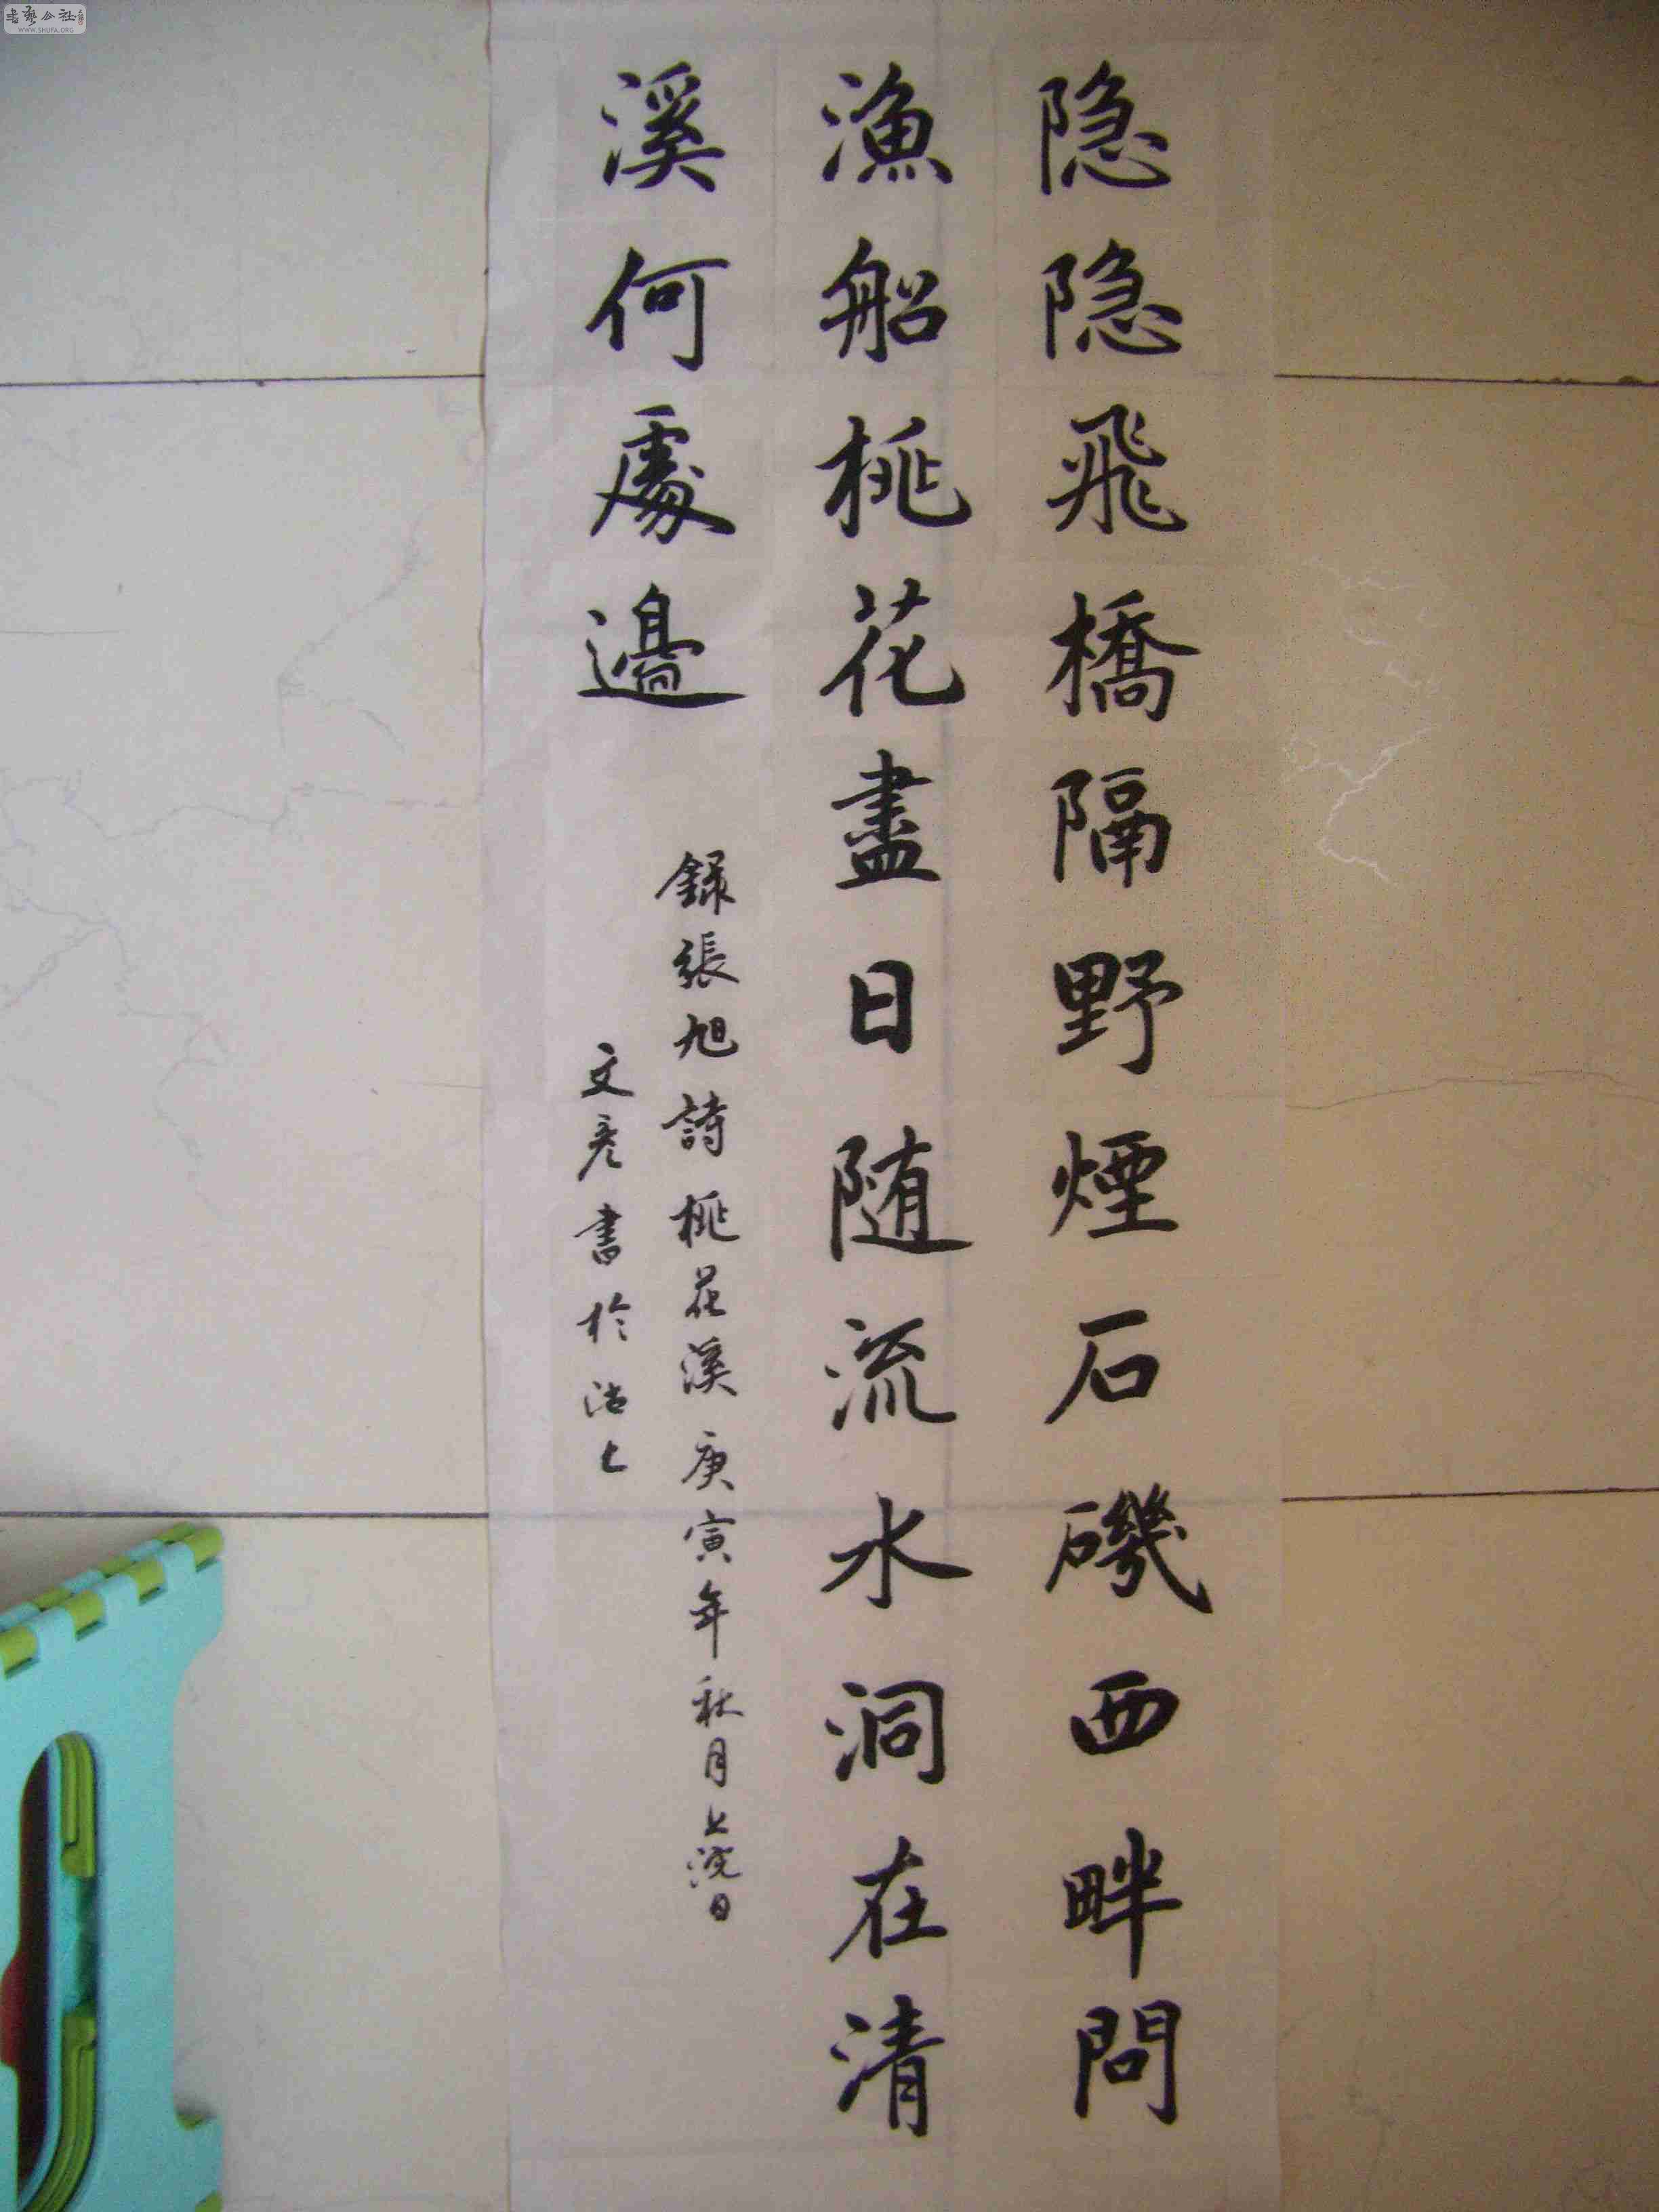 隐隐飛橋隔野煙石磯西畔問
漁船桃花盡日随流水洞在清
溪何處邊
録張旭詩桃花溪庚寅年秋月上浣日
文彦書於沽上
書藝公社
WWW.SHUFA.ORG